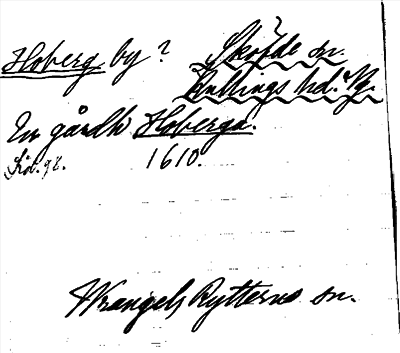 Hoberg by? Sköfde sn.
Kullings hd. Vg.
En gårdh Hoberga.
1610.
Wrangels Rytterne sn.